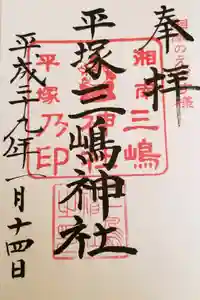 奉拝
湘南のえびす様
平塚三嶋神社
湘南三嶋
平塚乃印
平成二九年一月十四日